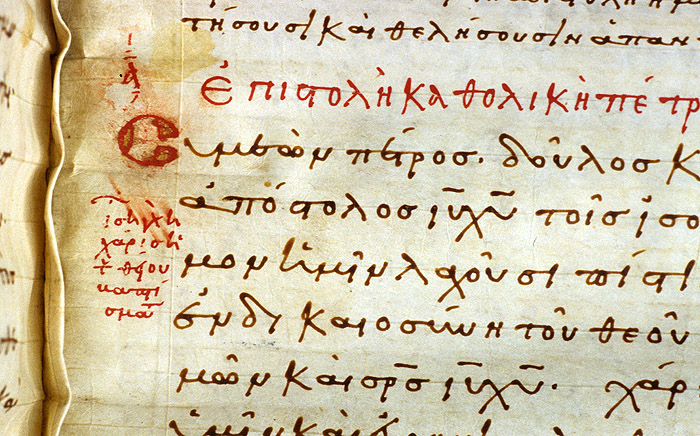 τήσουσι καὶ θελήσουσιν ἁπαντ
ἐπιστολὴ καθολικὴ πέτρ
Συμεὼν πέτρος. δοῦλος κ
ἀπόστολος ι̅υ̅ χ̅υ̅ τοῖς ἰσο
μον ἡμῖν λαχοῦσι πίστι
ἐν δικαιοσύνη τοῦ θεοῦ
μῶν καὶ σ̅ρ̅ς̅ ι̅υ̅ χ̅υ̅. χάρ
ὑμῖν καὶ